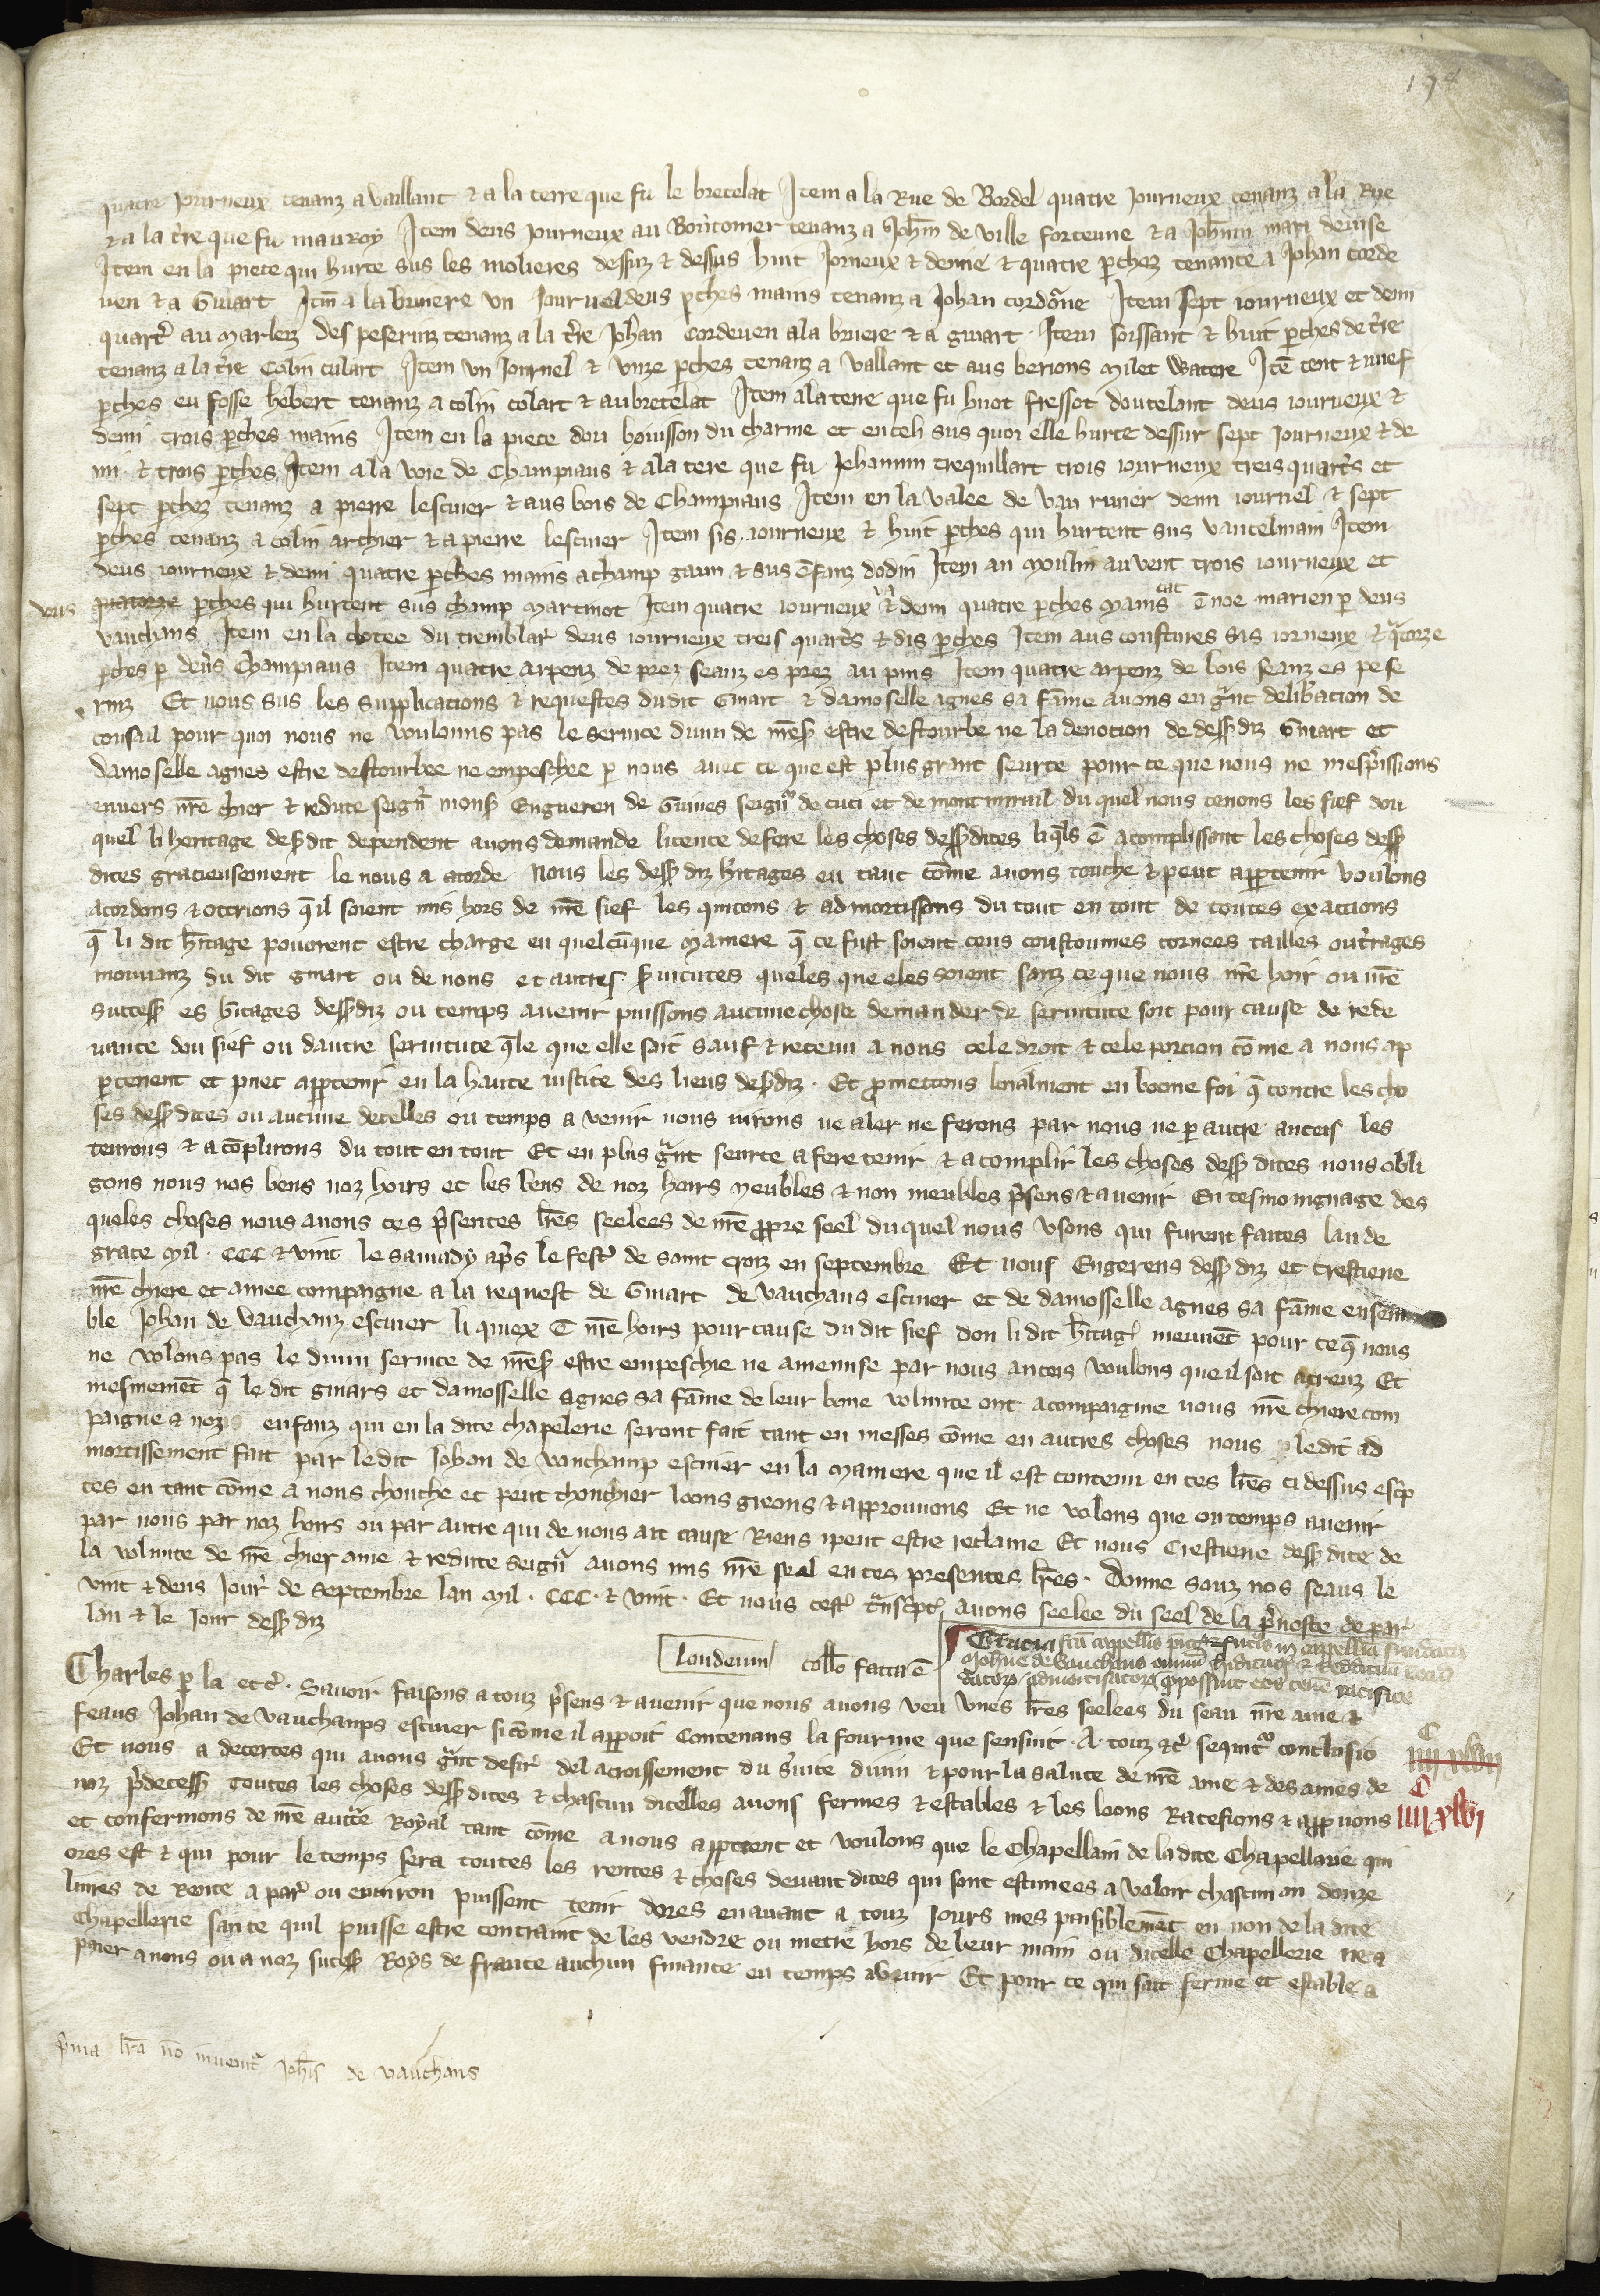 194
quatre journeux tenanz a vaillant & a la terre que fu le bretelat Item a la Rue de Bordel quatre journeux tenanz a la Rue
& a la tre que fu mauroy Item deus journeux au tenanz a Johm de ville forteune & a Johnm mari denise
Item en la piece qui hurte sus les molieres dessuz & dessus huit jorneux & demie & quatre pchez tenante a Johan corde
uen & a Guiart Itm a la bruiere un journel deus pches mains tenanz a Johan Item sept iourneux et demi
quartr au marlez des peserinz tenanz a la tre Jehan Cordeuen a la bruiere & a guiart Item soissant & huit pches de tre
tenanz a la tre Colin culart Item un Journel & unze pches tenanz a vallant et aus berions milet watere Ite cent & nuef
pches eu fosse hebert tenanz a colin colart & au bretelat Item a la terre que fu huot fressot deus iourneux &
demi trois pches mains Item en la piece dou boiusson du charme et en celi sus quoi elle hurte dessur sept journeux & de
mi & trois pches Item a la voie de Champiaus & a la tere que fu Jehannin trequillart trois iourneux treis quarts et
sept pchez tenanz a pierre lescuier & aus bois de Champiaus Item en la valee de vau runer demi iournel & sept
pches tenanz a colin archier & a pierre lescuier Item sis iourneux & huit pches qui hurtent sus vaucelmain Item
deus iourneux & demi quatre pches mains a champ & sus enfanz dodin Item au moulin au vent trois iourneux et
quatorze pches qui hurtent sus champ martinot Item quatre iourneux & demi quatre pches mains e noe marien p deus
vauchans Item en la du tremblar deus iourneux treis quarts & dis pches Item aus coustures sis iorneux & qtorze
pches p deus Champiaus Item quatre arpenz de prez seanz es prez au pins Item quatre arpenz de bois seanz es pese
rinz Et nous sus les supplications & requestes dudit Guiart & damoselle agnes sa fame auons eu grnt delibacion de
consail pour quoi nous ne voulonns pas le seruice diuin de mes estre destourbe ne la deuotion de dess diz Guiart et
damoselle agnes estre destourbee ne empeschee p nous auec ce que est plus grant seurte pour ce que nous ne mesprissions
enuers nre chier & redute seignr mons Engueren de Guines seignr de cuci et de mont mirail du quel nous tenons les fief dou
quel li heritage desdit dependent auons demande licence de fere les choses dessdites liqls e acomplissant les choses dess
dites gracieusement le nous a acorde Nous les dess diz hitages en tant come auons touche & peut appartenir voulons
acordons & ottrions q il soient mis hors de nre fief les quitons & admortissons du tout en tout de toutes exactions
q li dit hitage pouoient estre charge en quelcunque maniere q ce fust soient cens coustoumes cornees tailles outrages
mouuanz du dit guiart ou de nous et autres suitutes queles que eles soient sanz ce que nous nre hoir ou nre
success es hitages dessdiz ou temps auenir puissons aucune chose demander de seruitute soit pour cause de rede
uance dou fief ou dautre seruitute qle que elle soit sauf & retenu a nous cele droit & cele porcion come a nous ap
ptenent et puet apptenir en la haute iustice des lieus desdiz Et prometons loialment en bonne foi q contre les cho
ses dess dites ou aucune decelles ou temps a venir nous nirons ne aler ne ferons par nous ne p autre anceis les
tenrons & acoplirons du tout en tout Et en plus grnt seurte a fere tenir & acomplir les choses dess dites nous obli
gons nous nos bens noz hoirs et les bens de noz hoirs meubles & non meubles prsens & auenir En tesmoingnage des
queles choses nous auons ces prsentes lres seelees de nre propre seel du quel nous usons qui furent faites lan de
grace mil CCC & vint le samady aprs le festr de saint croiz en septembre Et nous Engerens dess diz et crestiene
nre chiere et amee compaigne a la request de Guiart de vauchans escuier et de damosselle agnes sa fame ensem
ble Johan de vauchanz escuier li quiex e nre hoirs pour cause du dit fief don li dit hitag meuuet pour ce q nous
ne volons pas le diuin seruice de mes estre empeschie ne amenuse par nous anceis voulons que il soit acreuz Et
mesmement q le dit guiars et damosselle agnes sa fame de leur bone volunte ont acompaignie nous nre chiere com
paigne & noz enfanz qui en la dite chapelerie seront fait tant en messes come en autres choses nous ledit ad
mortissement fait par le dit Johan de vauchamp escuier en la maniere que il est contenu en ces lres ci dessus escp
tes en tant come a nous chouche et peut chouchier loons greons & approuuons Et ne volons que ou temps auenir
par nous par noz hoirs ou par autre qui de nous ait cause Riens ipeut estre reclame Et nous Crestiene dess dite de
la volunte de nre chier ame & redute seignr auons mis nre seal en ces presentes lres Donne souz nos seaus le
vint & deus Jour de septembre lan mil CCC & vint Et nous cest trnscpt auons seelee du seel de la prvoste de par
lan & le Jour dess diz
londeum collo facta e
Gracia cappellis in cappellia
Johne de vauchans hiditag & Reddituu
admortisatorz possint eos tenere pacifice
Charles p la etc Sauoir faisons a touz prsens & auenir que nous auons veu unes lres seelees du seau nre ame &
feaus Johan de vauchamps escuier sicome il appoit Contenans la fourme que sensuit A touz &c sequitr conclusio
Et nous a decertes qui auons grnt desir del acroissement du suice diuin & pour la salute de nre ame & des ames de
noz prdecess toutes les choses dess dites & chascun dicelles auons fermes & estables & les loons Ratefions & appuons
et confermons de nre auctte Royal tant come a nous apptient et voulons que le Chapellain de la dite Chapellerie qui
ores est & qui pour le temps sera toutes les rentes & choses deuant dites qui sont estimees a valoir chascun an douze
liures de Rente a par ou enuiron puissent tenir dores enauant a touz Jours mes paisiblement en non de la dite
Chapellerie san ce quil puisse estre contraint de les vendre ou metre hors de leur main ou dicelle Chapellerie ne a
paier a nous ou a noz sucess Roys de france auchun finance eu temps auenir Et pour ce qui sait ferme et estable a
C
IIII xlvii
C
IIII xlvi
prima lra no inuenitr Johis de vauchans